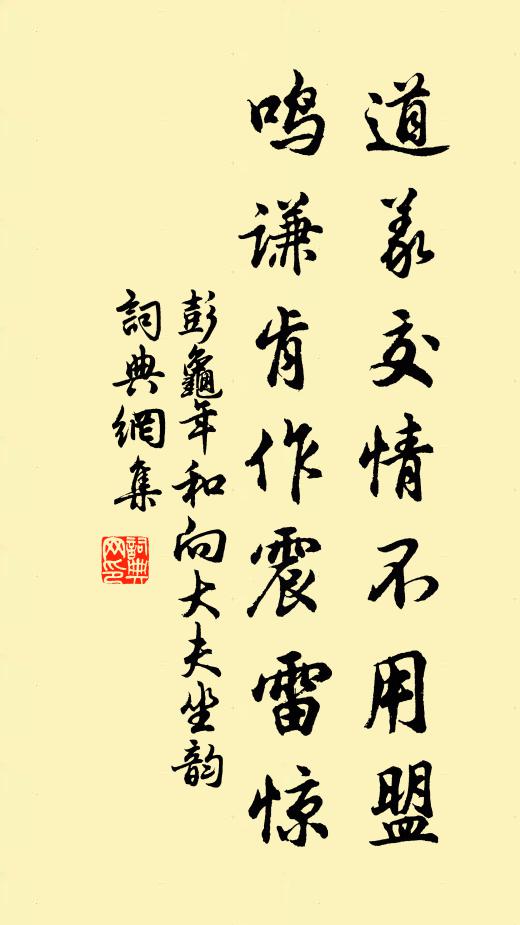 道义交情不用盟
鸣谦肯作震雷惊
彭龜年和向大夫坐韵
詞典網集
詞典
网印